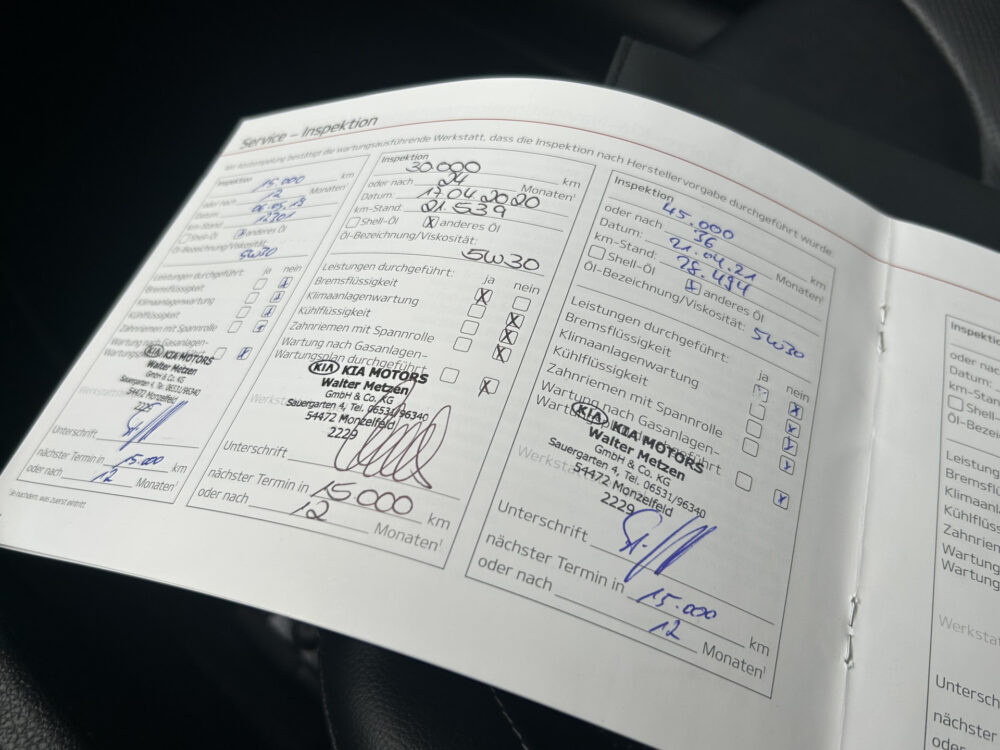 Service – Inspektion
Mit Abstempelung bestätigt die wartungsausführende Werkstatt, dass die Inspektion nach Herstellervorgabe durchgeführt wurde.
Inspektion
15.000 km
oder nach 12 Monaten¹
Datum:
km-Stand:
Shell-Öl anderes Öl
Öl-Bezeichnung/Viskosität:
5W30
Leistungen durchgeführt: ja nein
Bremsflüssigkeit
Klimaanlagenwartung
Kühlflüssigkeit
Zahnriemen mit Spannrolle
Wartung nach Gasanlagen-
KIA KIA MOTORS
Walter Metzen
GmbH & Co. KG
Sauergarten 4, Tel. 06531/96340
54472 Monzelfeld
2229
Unterschrift
nächster Termin in 15.000 km
oder nach 12 Monaten¹
¹Je nachdem, was zuerst eintritt
Inspektion
30.000 km
oder nach 24 Monaten¹
Datum: 17.04.2020
km-Stand: 21.539
Shell-Öl X anderes Öl
Öl-Bezeichnung/Viskosität:
5W30
Leistungen durchgeführt: ja nein
Bremsflüssigkeit X
Klimaanlagenwartung X
Kühlflüssigkeit X
Zahnriemen mit Spannrolle X
Wartung nach Gasanlagen-
Wartungsplan durchgeführt X
KIA KIA MOTORS
Walter Metzen
GmbH & Co. KG
Sauergarten 4, Tel. 06531/96340
54472 Monzelfeld
2229
Unterschrift
nächster Termin in 15.000 km
oder nach 12 Monaten¹
Inspektion
45.000 km
oder nach 36 Monaten¹
Datum: 21.04.21
km-Stand: 28.494
Shell-Öl x anderes Öl
Öl-Bezeichnung/Viskosität: 5W30
Leistungen durchgeführt: ja nein
Bremsflüssigkeit x
Klimaanlagenwartung x
Kühlflüssigkeit x
Zahnriemen mit Spannrolle x
Wartung nach Gasanlagen-
x
KIA KIA MOTORS
Walter Metzen
GmbH & Co. KG
Sauergarten 4, Tel. 06531/96340
54472 Monzelfeld
2229
Unterschrift
nächster Termin in 15.000 km
oder nach 12 Monaten¹
Inspektion
oder nach
Datum:
km-Stand
Shell-Öl
Öl-Bezei
Leistunge
Bremsflüs
Klimaanla
Kühlflüssi
Zahnriem
Wartung
Wartung
Werksta
Unterschri
nächster
oder